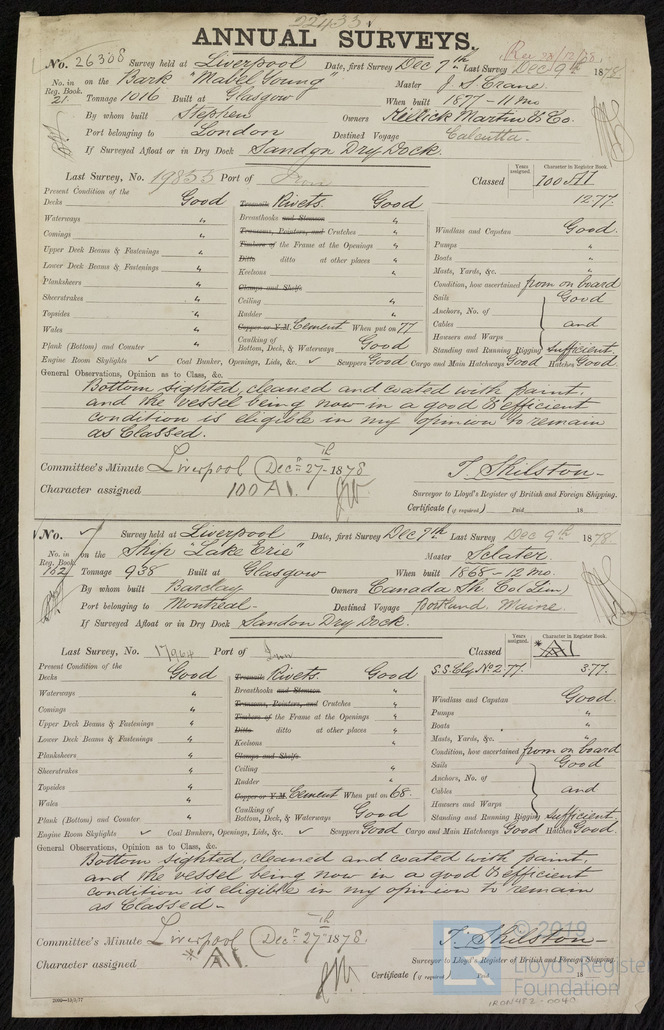 22433
ANNUAL SURVEYS.
Rec 28/12/78.
No. 26308 Survey held at Liverpool Date, first Survey Dec 7th Last Survey Dec 9th 1878
No. in Reg. Book. 21. on the Bark "Mabel Young" Master J. S. Crane.
Tonnage 1016 Built at Glasgow When built 1877 - 11 mo
By whom built Stephen Owners Killick Martin & Co.
Port belonging to London Destined Voyage Calcutta.
If Surveyed Afloat or in Dry Dock Sandon Dry Dock.
Years assigned. Character in Register Book.
Last Survey, No. 19833 Port of Iron Classed 100 A1
12.77.
Present Condition of the
Decks Good Treenails Rivets. Good
Waterways " Breasthooks and Stemson "
Comings " Transoms, Pointers, and Crutches "
Upper Deck Beams & Fastenings " Timbers of the Frame at the Openings "
Lower Deck Beams & Fastenings " Ditto ditto at other places "
Planksheers " Keelsons "
Sheerstrakes " Clamps and Shelfs
Topsides " Ceiling "
Wales " Rudder "
Plank (Bottom) and Counter " Copper or Y.M. Cement When put on 77
Caulking of Bottom, Deck, & Waterways Good
Windlass and Capstan Good.
Pumps "
Boats "
Masts, Yards, &c. "
Condition, how ascertained from on board
Sails Good
Anchors, No. of
Cables and
Hawsers and Warps
Standing and Running Rigging sufficient
Engine Room Skylights ✓ Coal Bunker, Openings, Lids, &c. ✓ Scuppers Good Cargo and Main Hatchways Good Hatches Good
General Observations, Opinion as to Class, &c.
Bottom sighted, cleaned and coated with paint,
and the vessel being now in a good & efficient
condition is eligible in my opinion to remain
as Classed.
Committee's Minute Liverpool (Decr 27th 1878
Character assigned 100 A1.
T. Skilston
Surveyor to Lloyd's Register of British and Foreign Shipping.
Certificate (if required) Paid 18
No. ✓ Survey held at Liverpool Date, first Survey Dec 7th Last Survey Dec 9th 1878
No. in Reg. Book. 182 on the Ship "Lake Erie" Master Sclater.
Tonnage 938 Built at Glasgow When built 1868 - 12 mo.
By whom built Barclay Owners Canada Sh. Co (Lim)
Port belonging to Montreal - Destined Voyage Portland, Maine.
If Surveyed Afloat or in Dry Dock Sandon Dry Dock.
Years assigned. Character in Register Book.
Last Survey, No. 17964 Port of Iron Classed A1
S.S. Cly No 2. 77. 3.77.
Present Condition of the
Decks Good Treenails Rivets. Good
Waterways " Breasthooks and Stemson "
Comings " Transoms, Pointers, and Crutches "
Upper Deck Beams & Fastenings " Timbers of the Frame at the Openings "
Lower Deck Beams & Fastenings " Ditto ditto at other places "
Planksheers " Keelsons "
Sheerstrakes " Clamps and Shelfs
Topsides " Ceiling "
Wales " Rudder "
Plank (Bottom) and Counter " Copper or Y.M. Cement When put on 68.
Caulking of Bottom, Deck, & Waterways Good
Windlass and Capstan Good.
Pumps "
Boats "
Masts, Yards, &c. "
Condition, how ascertained from on board
Sails Good
Anchors, No. of
Cables and
Hawsers and Warps
Standing and Running Rigging sufficient
Engine Room Skylights ✓ Coal Bunkers, Openings, Lids, &c. ✓ Scuppers Good Cargo and Main Hatchways Good Hatches Good.
General Observations, Opinion as to Class, &c.
Bottom sighted, cleaned and coated with paint,
and the vessel being now in a good & efficient
condition is eligible in my opinion to remain
as Classed -
Committee's Minute Liverpool (Decr 27th 1878.
Character assigned * A1.
T. Skilston
Surveyor to Lloyd's Register of British and Foreign Shipping.
Certificate (if required) Paid 18
LR © 2019
Lloyd's Register
Foundation
IRON482-0040